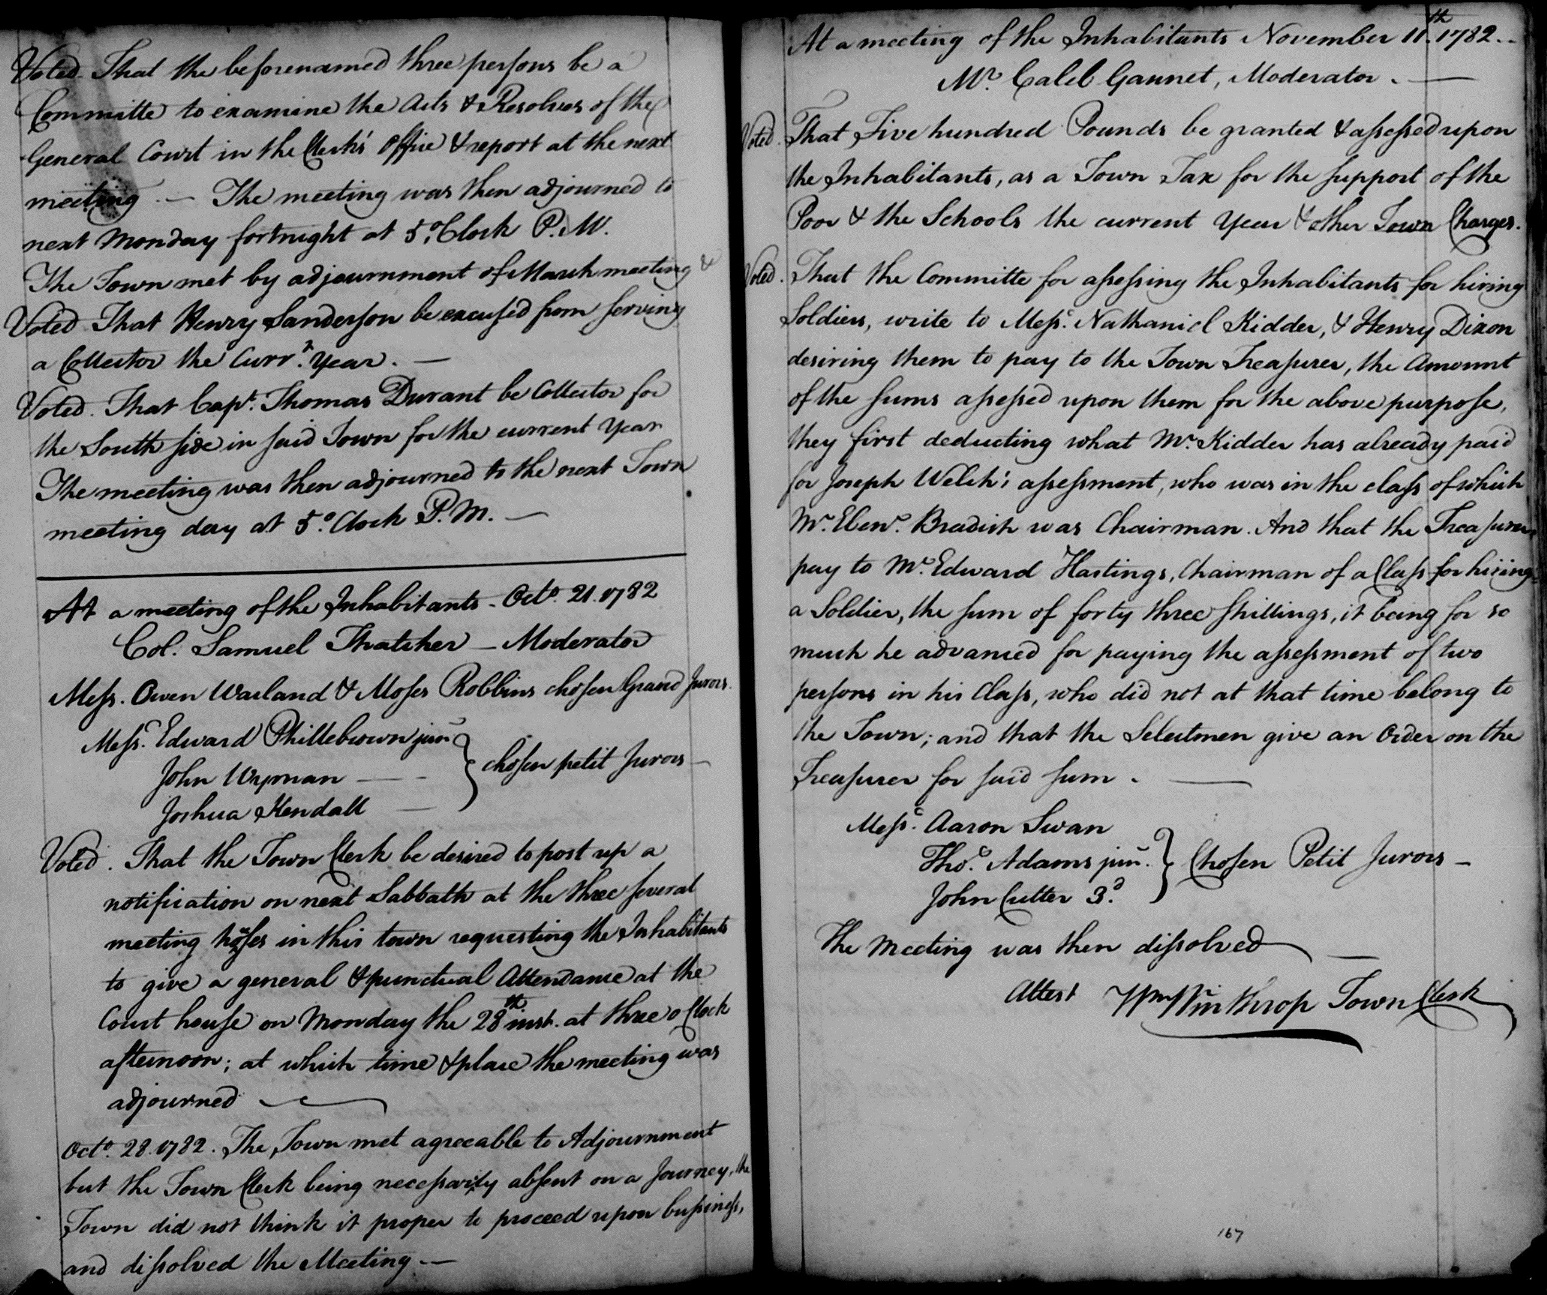 Voted. That the beforenamed three persons be a
Committe to examine the Acts & Resolves of the
General Court in the Clerk's Office & report at the next
meeting. — The meeting was then adjourned to
next Monday fortnight at 5 o'Clock P.M.
The Town met by adjournment of March meeting &
Voted. That Henry Sanderson be excused from serving
a Collector the Curr.t Year. —
Voted. That Capt. Thomas Durant be Collector for
the South side in said Town for the current Year
The meeting was then adjourned to the next Town
meeting day at 5 o Clock P.M. —
At a meeting of the Inhabitants - Octo. 21. 1782
Col. Samuel Thatcher — Moderator
Mess. Owen Warland & Moses Robbins chosen Grand Jurors.
Mess.rs Edward Phillebrown junr
John Wyman — -
Joshua Kendall —
} chosen petit Jurors —
Voted. That the Town Clerk be desired to post up a
notification on next Sabbath at the three several
meeting houses in this town requesting the Inhabitants
to give a general & punctual Attendance at the
Court house on Monday the 28th inst. at three o Clock
afternoon; at which time & place the meeting was
adjourned —
Octo. 28. 1782. The Town met agreeable to Adjournment
but the Town Clerk being necessarily absent on a Journey, the
Town did not think it proper to proceed upon bussiness,
and dissolved the Meeting —
At a meeting of the Inhabitants November 11th. 1782. -
Mr. Caleb Gannet, Moderator. —
Voted. That Five hundred Pounds be granted & assessed upon
the Inhabitants, as a Town Tax for the support of the
Poor & the Schools the current Year & other Town Charges.
Voted. That the Committe for assessing the Inhabitants for hiring
Soldiers, write to Mess.rs Nathaniel Kidder, & Henry Dixon
desiring them to pay to the Town Treasurer, the Amount
of the sums assessed upon them for the above purpose,
they first deducting what Mr. Kidder has already paid
for Joseph Welch's assessment, who was in the class of which
Mr. Ebenr. Bradish was Chairman. And that the Treasurer
pay to Mr. Edward Hastings, Chairman of a Class for hiring
a Soldier, the sum of forty three shillings, it being for so
much he advanced for paying the assessment of two
persons in his Class, who did not at that time belong to
the Town; and that the Selectmen give an Order on the
Treasurer for said sum. —
Mess.rs Aaron Swan
Thos. Adams junr.
John Cutter 3.d
} Chosen Petit Jurors —
The Meeting was then dissolved —
Attest Wm Winthrop Town Clerk
167